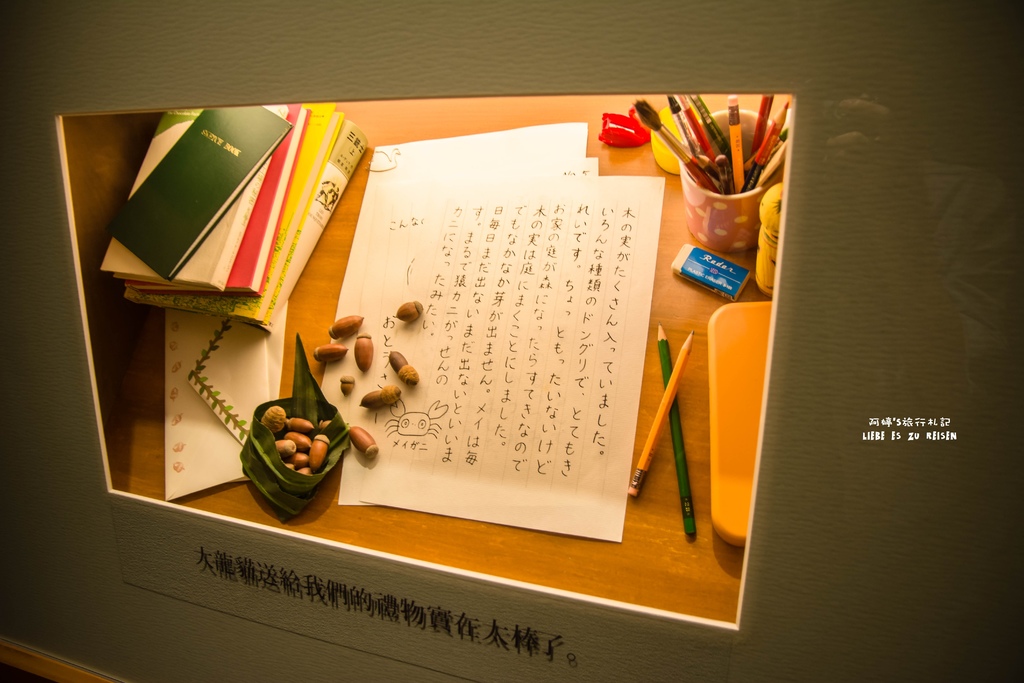 木の実がたくさん入っていました。
いろんな種類のドングリで、とてもき
れいです。ちょっともったいないけど
お家の庭が森になったらすてきなので
木の実は庭にまくことにしました。
でもなかなか芽が出ません。メイは毎
日毎日まだ出ないまだ出ないといいま
す。まるで猿カニがっせんの
カニになったみたい。
こんな
おとうさ
メイガニ
NOTE BOOK
三国志
上
Radar
PLASTIC
大龍貓送給我們的禮物實在太棒了。
阿婷's旅行札記
LIEBE ES ZU REISEN